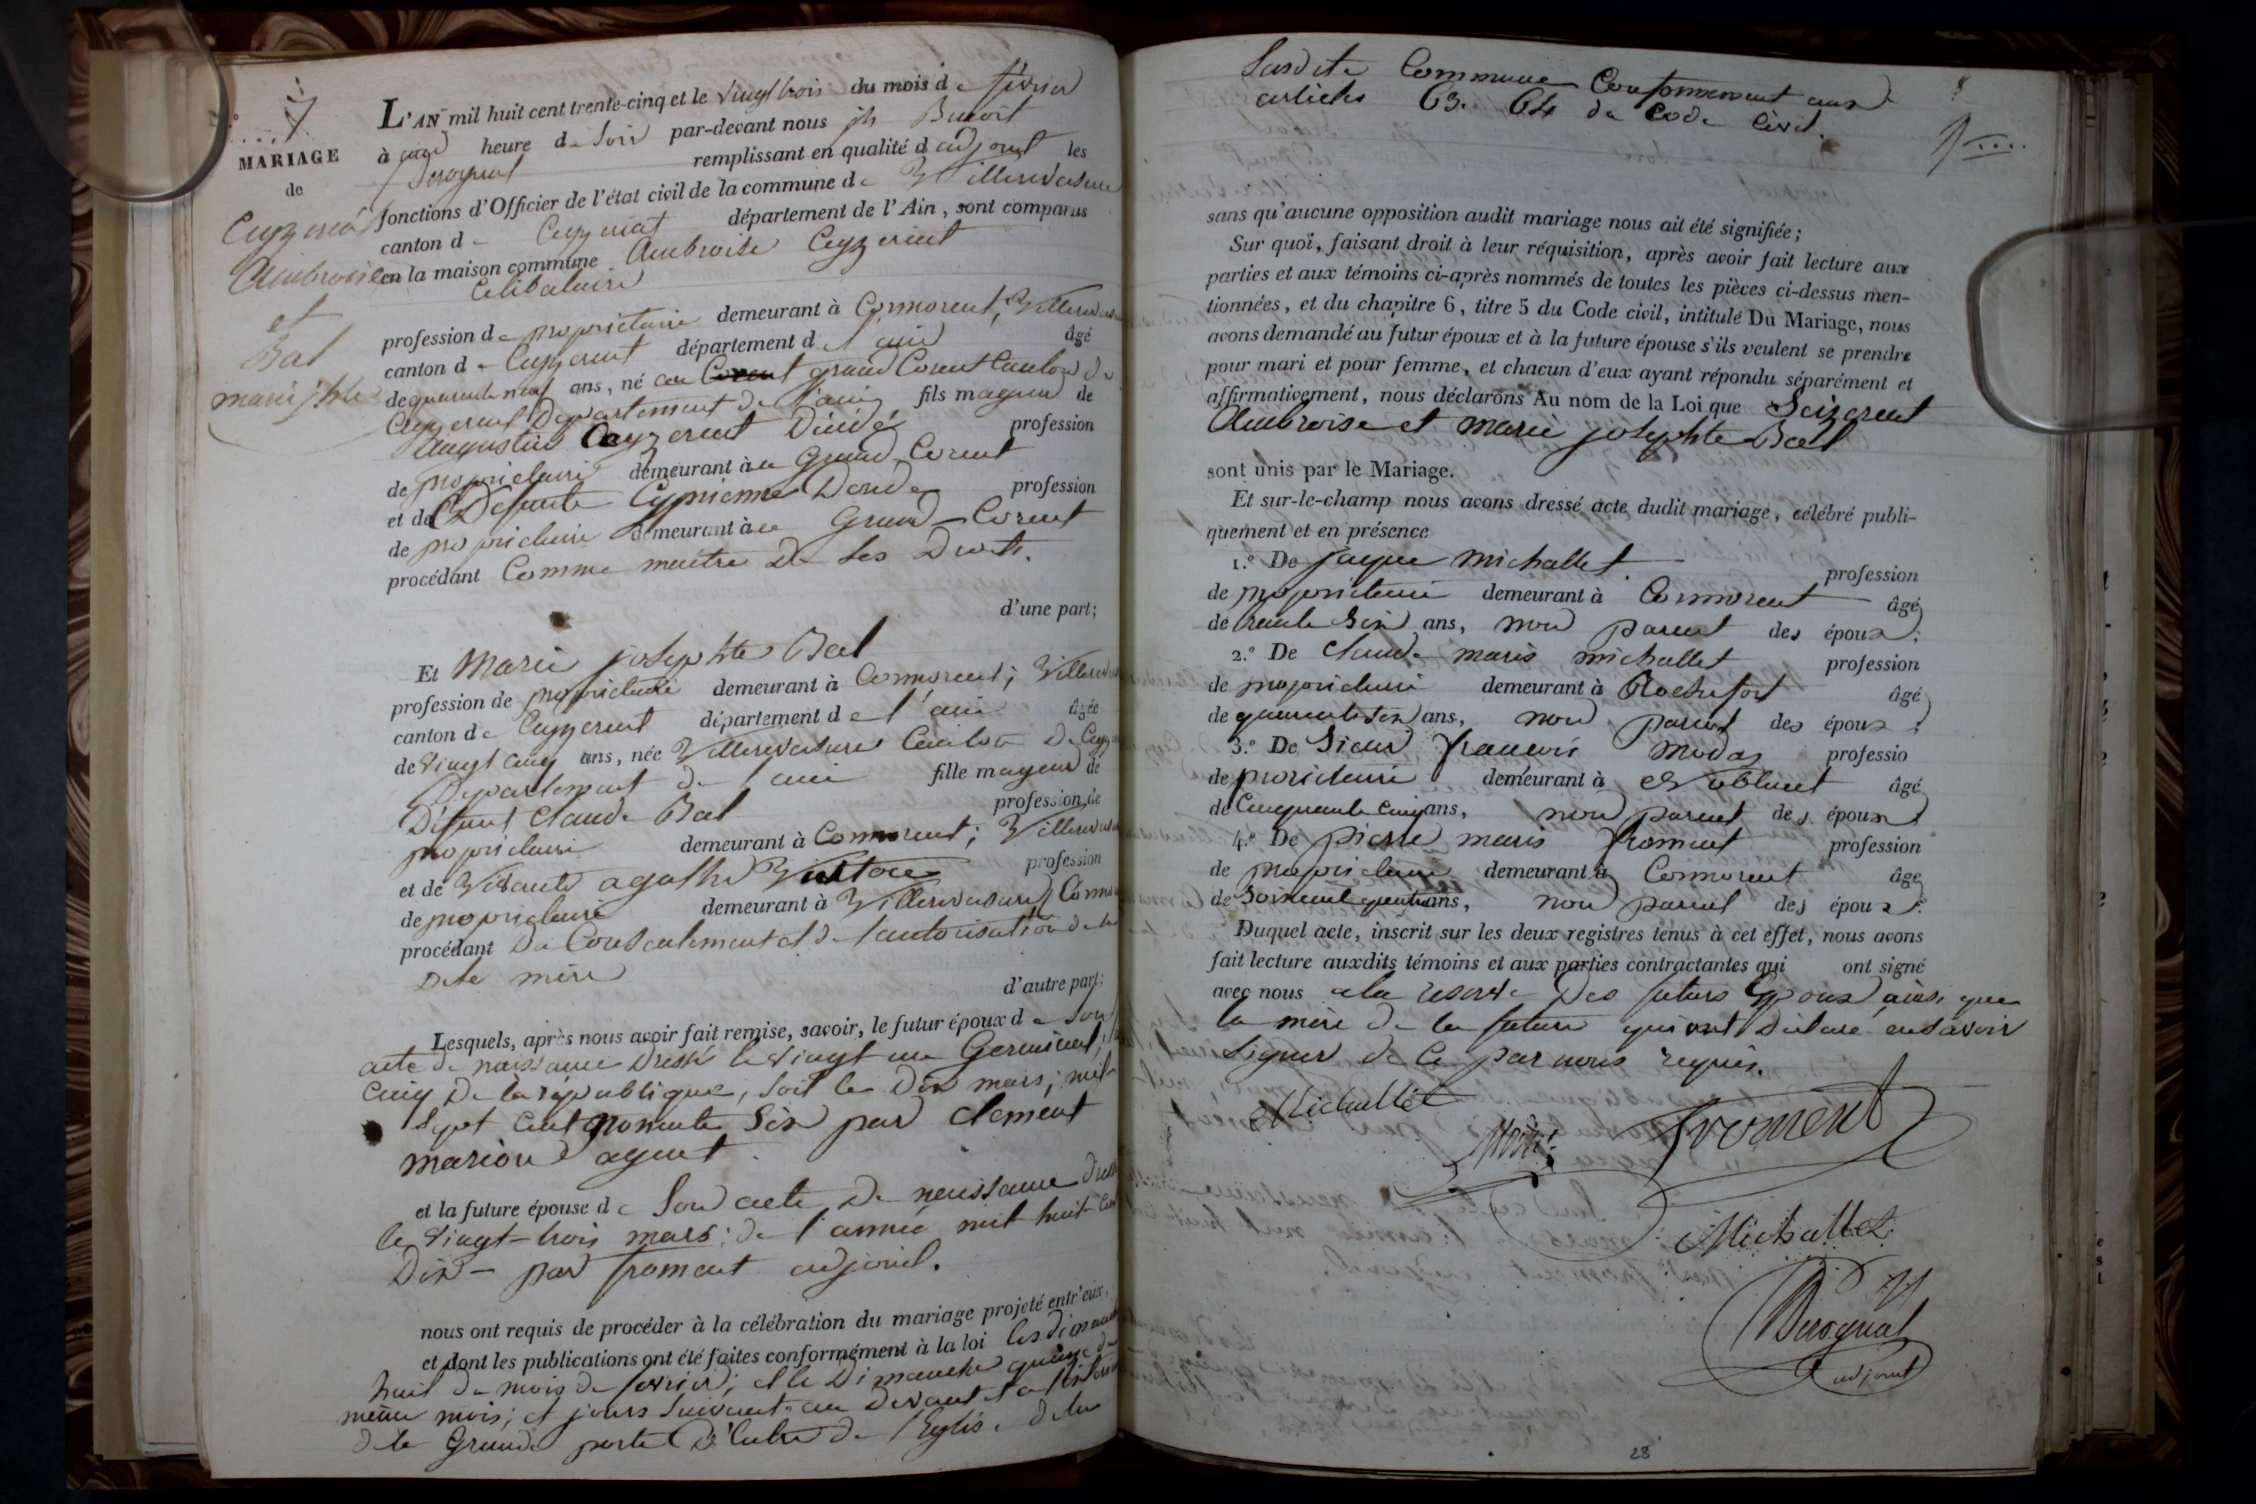 7
MARIAGE
de
Ceyzeriat
Ambroise
et
Bal
marie jphte
L'AN mil huit cent trente-cinq et le vingt trois du mois de février
à heure de Soir par-devant nous jh Benoit
remplissant en qualité d adjoint les
fonctions d'Officier de l'état civil de la commune de Villereversure
canton de Ceyzeriat département de l'Ain, sont comparus
en la maison commune Ambroise Ceyzeriat
Celibataire
profession de propriétaire demeurant à Cormorent, Villerevers
canton de Ceyzeriat département de l'ain âgé
de quarente neuf ans, né au grand Corent Canton de
Ceyzeriat Departement de l'ain fils mageur de
Augustin Ceyzeriat Décédé profession
de propriétaire demeurant à au Grand Corent
et de Defunte Cyprienne profession
de propriétaire demeurant à au Grand-Corent
procédant Comme maitre De Ses Droits.
d'une part;
Et Marie josephte Bal
profession de propriétaire demeurant à Cormorent; Villerevers
canton de Ceyzeriat département de l'ain âgée
de vingt cinq ans, née Villereversure Canton De Ceyz
Departement de l'ain fille mageur de
Défunt Claude Bal profession de
propriétaire demeurant à Cormorent; Villerevers
et de Vivante agathe profession
de propriétaire demeurant à Villereversure Cormo
procédant Du Consentement et de l'autorisation de la
Dite mère
d'autre part;
Lesquels, après nous avoir fait remise, savoir, le futur époux de Son
acte de naissance Dressé le vingt un Germinal,
Cinq De la république, Soit le Dix mars; mil
Sept Cent nonante Six par Clement
marion agent.
et la future épouse de Son acte De naissance Dressé
le vingt-trois mars; de l'année mil huit cent
Dix - par froment adjoint.
nous ont requis de procéder à la célébration du mariage projeté entr'eux,
et dont les publications ont été faites conformément à la loi les Dimanche
huit du mois de fevrier; et le Dimanche quinze du
même mois; et jours Suivant au Devant et a l'entrée
de la Grande porte D'Entre de l'Eglise de la
Susdite Commune Conformement aux
articles 63. 64 du Code Civil.
sans qu'aucune opposition audit mariage nous ait été signifiée;
Sur quoi, faisant droit à leur réquisition, après avoir fait lecture aux
parties et aux témoins ci-après nommés de toutes les pièces ci-dessus men-
tionnées, et du chapitre 6, titre 5 du Code civil, intitulé Du Mariage, nous
avons demandé au futur époux et à la future épouse s'ils veulent se prendre
pour mari et pour femme, et chacun d'eux ayant répondu séparément et
affirmativement, nous déclarons Au nom de la Loi que Seizeriat
Ambroise et marie josephte Bal
sont unis par le Mariage.
Et sur-le-champ nous avons dressé acte dudit mariage, célébré publi-
quement et en présence
1.º De jaque michallet profession
de propriétaire demeurant à Cormorent âgé
de trente Six ans, non parent des époux;
2.º De Claude marie michallet profession
de propriétaire demeurant à Rochefort âgé
de quarente Six ans, non parent des époux;
3.º De Sieur francois profession
de propriétaire demeurant à âgé
de Cinquante Cinq ans, non parent des époux;
4.º De pierre marie froment profession
de propriétaire demeurant à Cormorent âgé
de ans, non parent des époux;
Duquel acte, inscrit sur les deux registres tenus à cet effet, nous avons
fait lecture auxdits témoins et aux parties contractantes qui ont signé
avec nous a la reserve Des futurs Epoux ainsi que
la mère de la future qui ont Déclaré ne savoir
Signer de Ce par nous requis.
Michallet
Froment
Michallet
adjoint
28